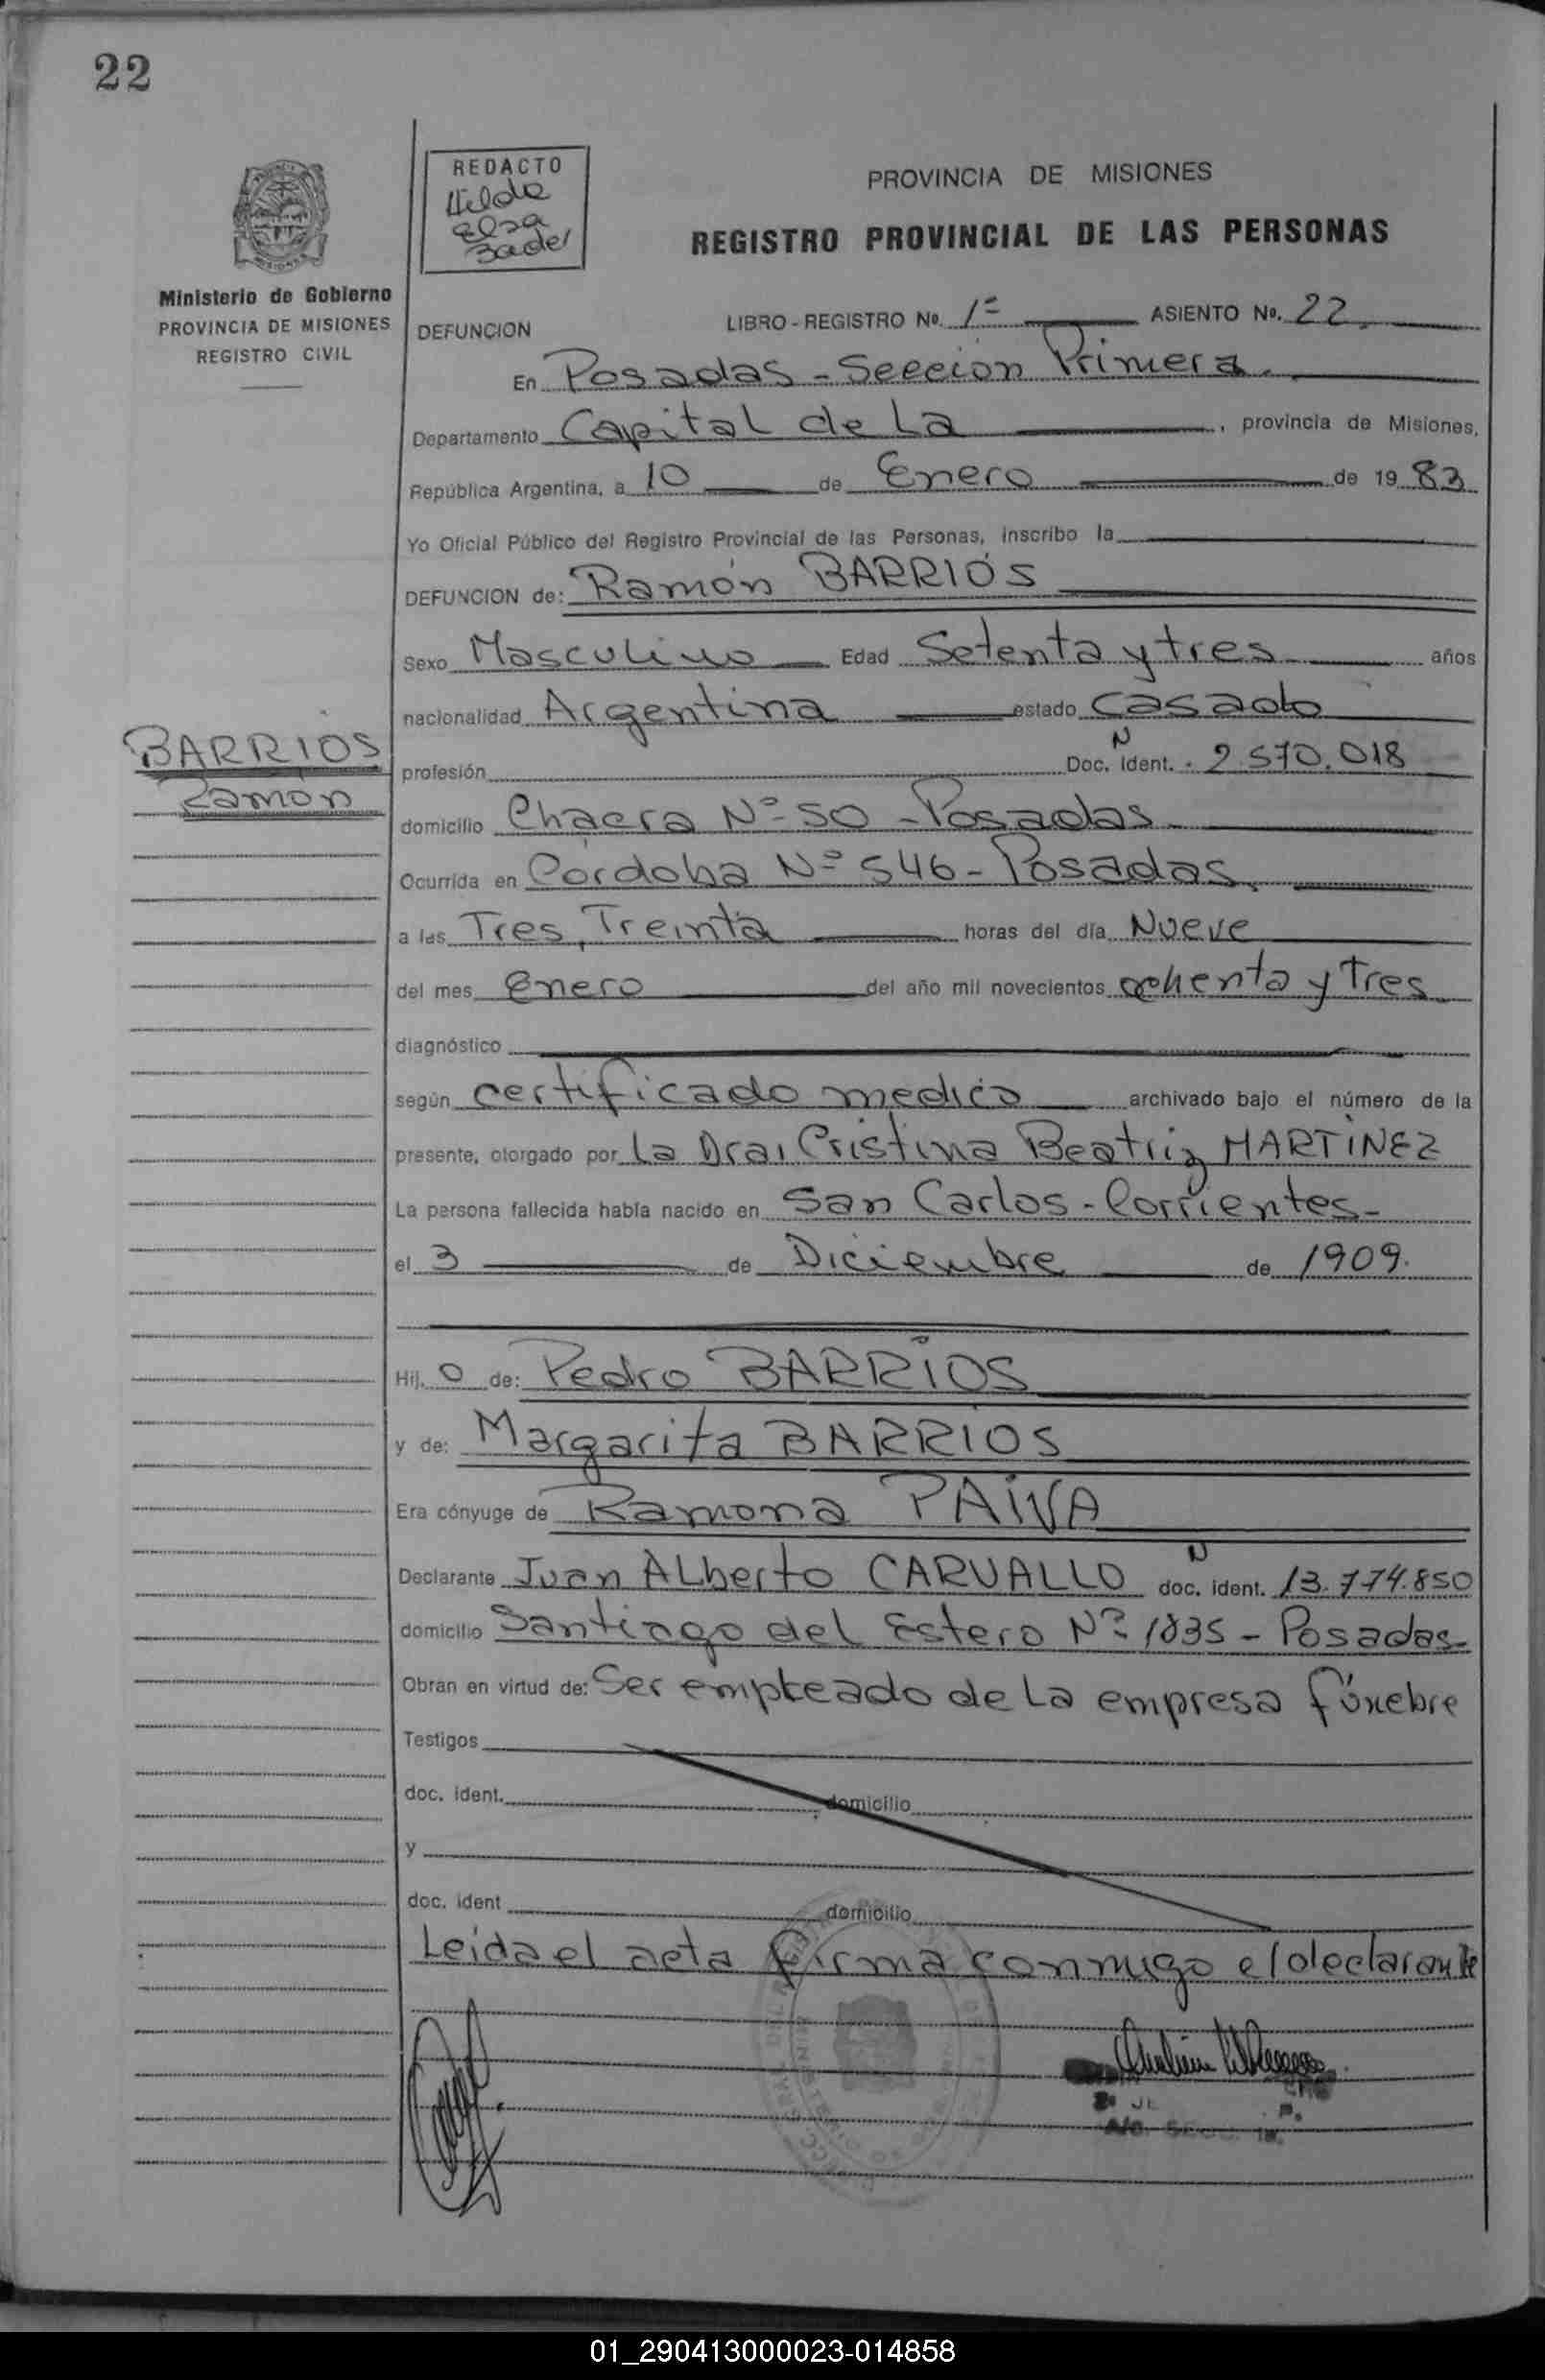 22
REDACTO
Hilda
Elsa
Ministerio de Gobierno
PROVINCIA DE MISIONES
REGISTRO CIVIL
PROVINCIA DE MISIONES
REGISTRO PROVINCIAL DE LAS PERSONAS
DEFUNCION LIBRO - REGISTRO Nº. 1º ASIENTO Nº. 22.
En Posadas - Seccion Primera.
Departamento Capital de La , provincia de Misiones,
República Argentina, a 10 de Enero de 19 83
Yo Oficial Público del Registro Provincial de las Personas, inscribo la
DEFUNCION de: Ramón BARRIOS
Sexo Masculino Edad Setenta y tres años
nacionalidad Argentina estado casado
BARRIOS
Ramón
profesión Doc. N Ident. 2.570.018
domicilio Chacra Nº 50 - Posadas
Ocurrida en Córdoba Nº 546 - Posadas.
a las Tres, Treinta horas del día Nueve
del mes Enero del año mil novecientos ochenta y Tres
diagnóstico
según certificado medico archivado bajo el número de la
presente, otorgado por La Dra. Cristina Beatriz MARTINEZ
La persona fallecida había nacido en San Carlos - Corrientes -
el 3 de Diciembre de 1909.
Hij o de: Pedro BARRIOS
y de: Margarita BARRIOS
Era cónyuge de Ramona PAIVA
Declarante Juan ALberto CARVALLO doc. N ident. 13.774.850
domicilio Santiago del Estero Nº 1835 - Posadas-
Obran en virtud de: Ser empleado de La empresa fúnebre
Testigos
doc. ident. domicilio
y
doc. ident domicilio
Leida el acta firma conmigo el declarante
01_290413000023-014858